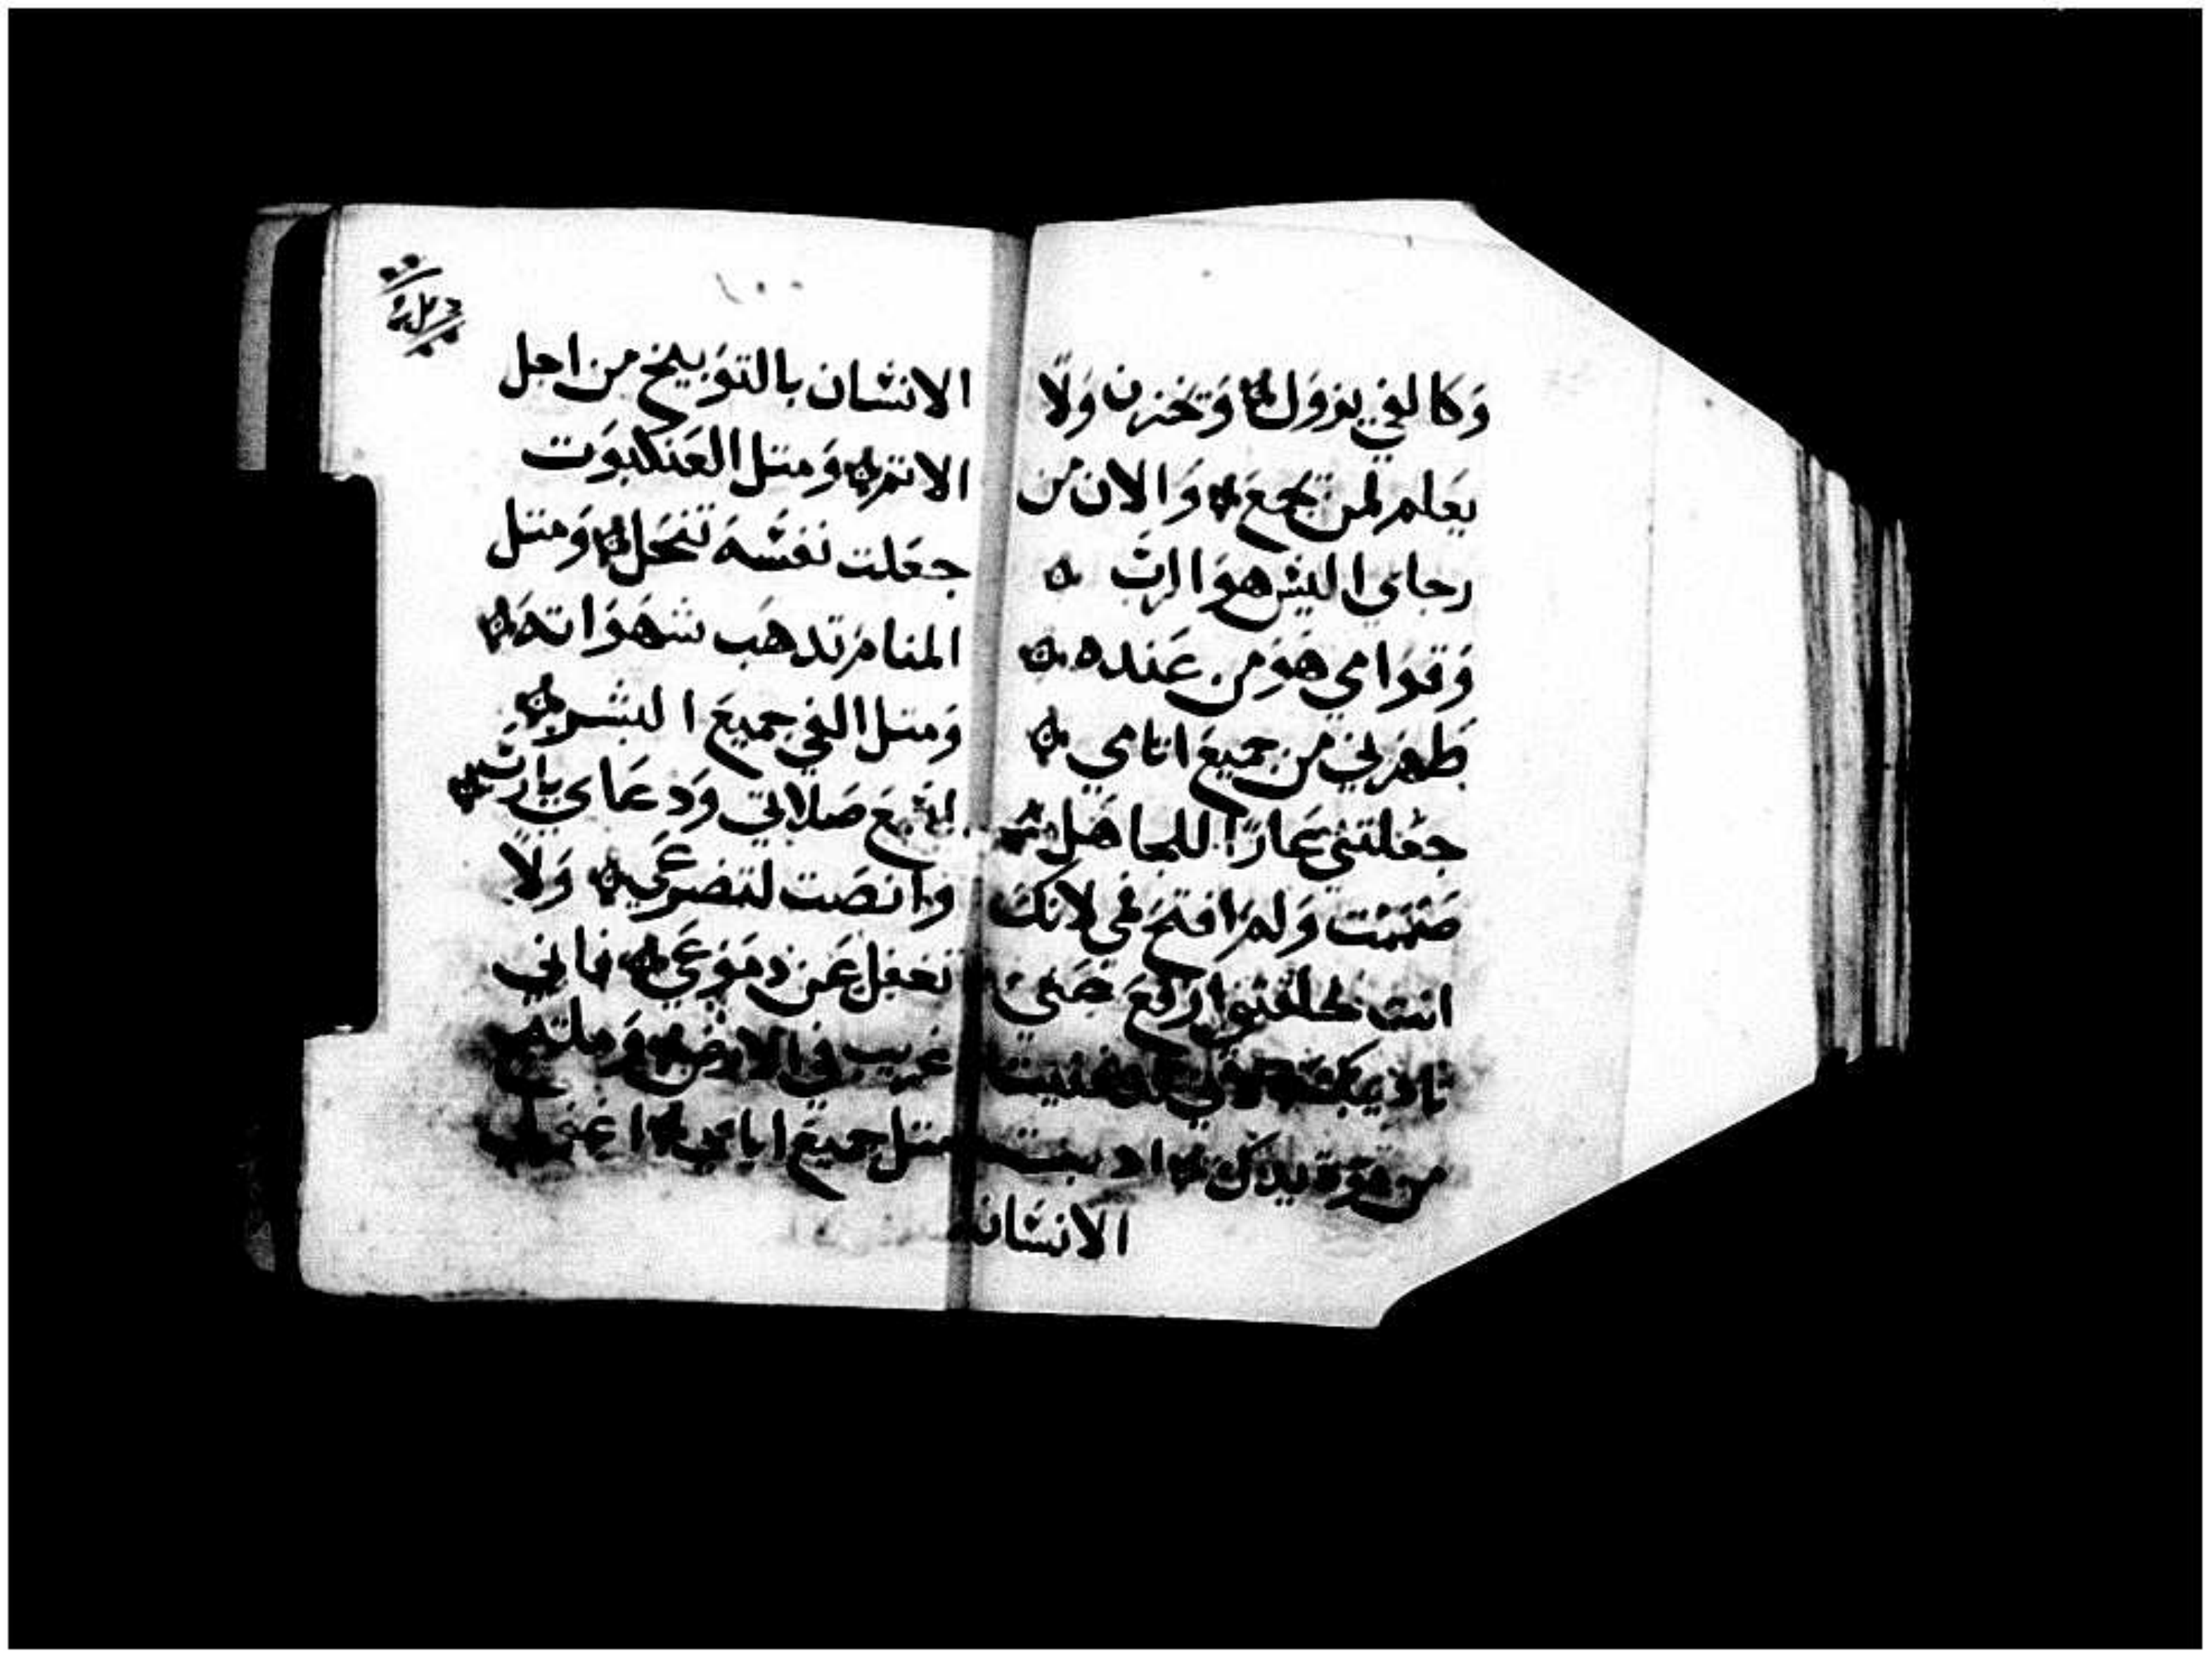 وَكالفي يزوَل وَتخزن وَلاَ
يعَلم لمن تجمعَ وَالان من
رجاي اليسَ هوَ الربَ
وَقوَامي هوَ من عَنده
طهرني من جميعَ اتامي
جعَلتني عَارًا للجاهَل
صَمت وَلم افتحَ في لانك
انت خلقتني ارفعَ عَني
تاديبك لاني قد فنيت
من قوَة يدك اد
الانسَان
١٠٠
الانسَان بالتوَبيخ من اجل
الاتم وَمتل العَنكبوَت
جعَلت نفسَه تنحَل وَمتل
المنام تدهَب شهَوَاته
وَمتل الفي جميعَ البشر
اسَمعَ صَلاتي وَدعَاي يارَب
وَانصَت لتضرعَي وَلاَ
تغفل عَن دموَعَي فاني
غريب في الارض وَملتجي
متل جميعَ اباي اغفر لي